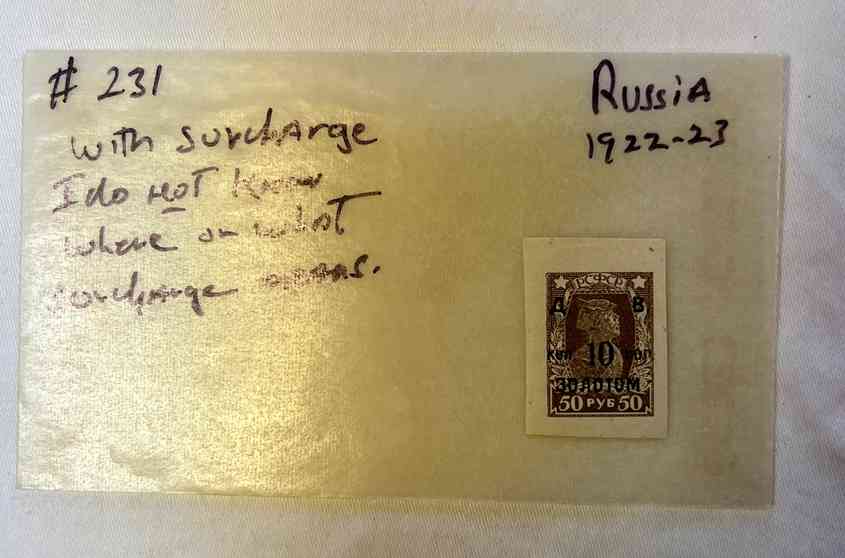 # 231
Russia
1922-23
with surcharge
I do not know
where or what
surcharge means.
РСФСР
Д В
коп 10 коп
ЗОЛОТОМ
50 РУБ 50